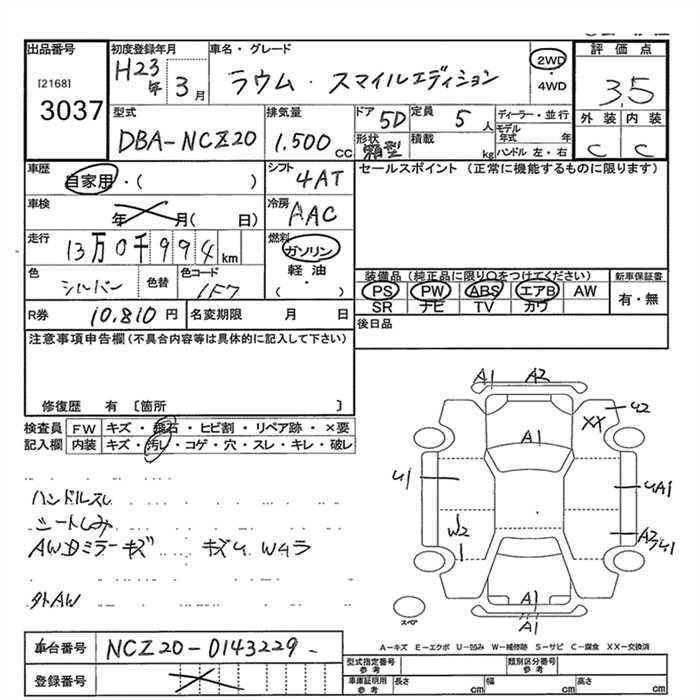 出品番号
[2168]
3037
初度登録年月
H23年 3月
車名・グレード
ラウム・スマイルエディション
2WD
・
4WD
評価点
3.5
外装 内装
C C
型式
DBA-NCZ20
排気量
1.500 cc
ドア 5D
形状 箱型
定員 5 人
積載 kg
ディーラー・並行
モデル年式 年
ハンドル 左・右
車歴
自家用・( )
シフト
4AT
セールスポイント(正常に機能するものに限ります)
車検
年 月( 日)
冷房
AAC
走行
13万0千994 km
燃料
ガソリン
軽油
・
( )
色
シルバー
色替
色コード
1F7
装備品(純正品に限り○をつけてください)
PS PW ABS エアB AW
SR ナビ TV カワ
新車保証書
有・無
R券 10.810 円
名変期限 月 日
後日品
注意事項申告欄(不具合内容等は具体的に記入して下さい)
修復歴 有 〔箇所 〕
検査員記入欄
FW キズ・飛石・ヒビ割・リペア跡・×要
内装 キズ・汚レ・コゲ・穴・スレ・キレ・破レ
ハンドルスレ
シートしみ
AWDミラーキズ キズU Wムラ
外AW
A1 A2
XX U2
A1
U1
UA1
W2
A2/U1
A1
A1
スペア
A-キズ E-エクボ U-凹み W-補修跡 S-サビ C-腐食 XX-交換済
車台番号 NCZ20-0143229-
登録番号
型式指定番号
参考
類別区分番号
参考
車庫証明用
参考
長さ cm
幅 cm
高さ cm